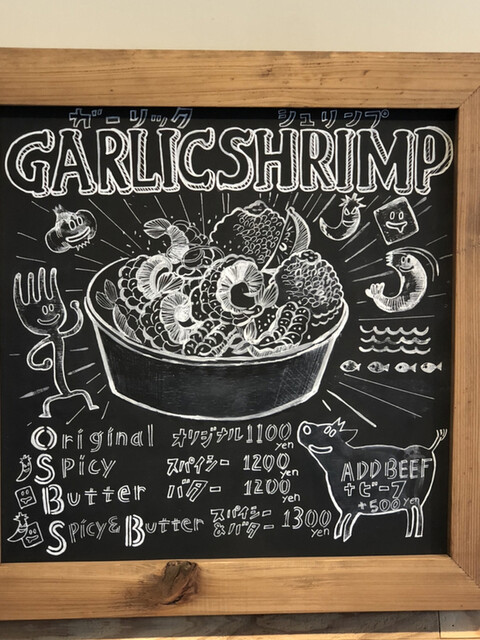 ガーリック シュリンプ
GARLIC SHRIMP
Original オリジナル 1100 yen
Spicy スパイシー 1200 yen
Butter バター 1200 yen
Spicy & Butter スパイシー & バター 1300 yen
ADD BEEF
+ビーフ
+500 yen